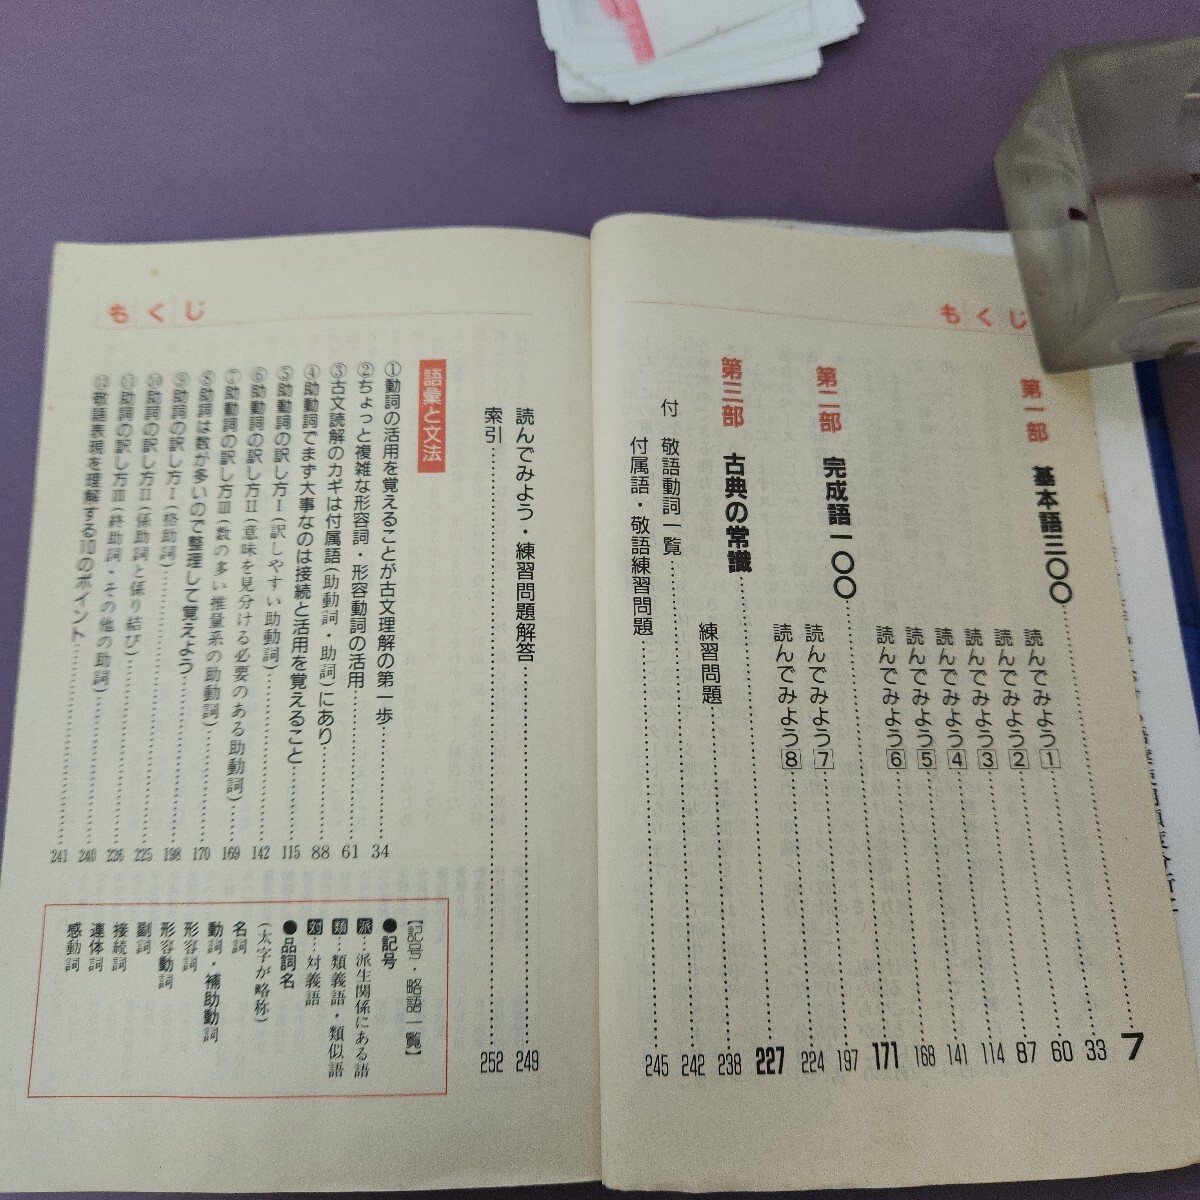 もくじ
第一部 基本語三〇〇……7
読んでみよう1……33
読んでみよう2……60
読んでみよう3……87
読んでみよう4……114
読んでみよう5……141
読んでみよう6……168
第二部 完成語一〇〇……171
読んでみよう7……197
読んでみよう8……224
第三部 古典の常識……227
練習問題……238
付 敬語動詞一覧……242
付属語・敬語練習問題……245
もくじ
読んでみよう・練習問題解答……249
索引……252
語彙と文法
①動詞の活用を覚えることが古文理解の第一歩……34
②ちょっと複雑な形容詞・形容動詞の活用……61
③古文読解のカギは付属語(助動詞・助詞)にあり……88
④助動詞でまず大事なのは接続と活用を覚えること……115
⑤助動詞の訳し方Ⅰ(訳しやすい助動詞)……142
⑥助動詞の訳し方Ⅱ(意味を見分ける必要のある助動詞)……169
⑦助動詞の訳し方Ⅲ(数の多い推量系の助動詞)……170
⑧助詞は数が多いので整理して覚えよう……198
⑨助詞の訳し方Ⅰ(格助詞)……225
⑩助詞の訳し方Ⅱ(係助詞と係り結び)……226
⑪助詞の訳し方Ⅲ(終助詞・その他の助詞)……240
⑫敬語表現を理解する10のポイント……241
【記号・略語一覧】
●記号
派…派生関係にある語
類…類義語・類似語
対…対義語
●品詞名
(太字が略称)
名詞
動詞・補助動詞
形容詞
形容動詞
副詞
接続詞
連体詞
感動詞